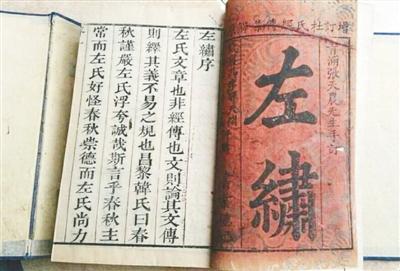 增訂杜氏經傳集
張天農先生手訂
左繡
左繡序
左氏文章也非經傳也文則論其文傳
則繹其義不易之規也昌黎韓氏曰春
秋謹嚴左氏浮夸誠哉斯言乎春秋主
常而左氏好怪春秋崇德而左氏尚力